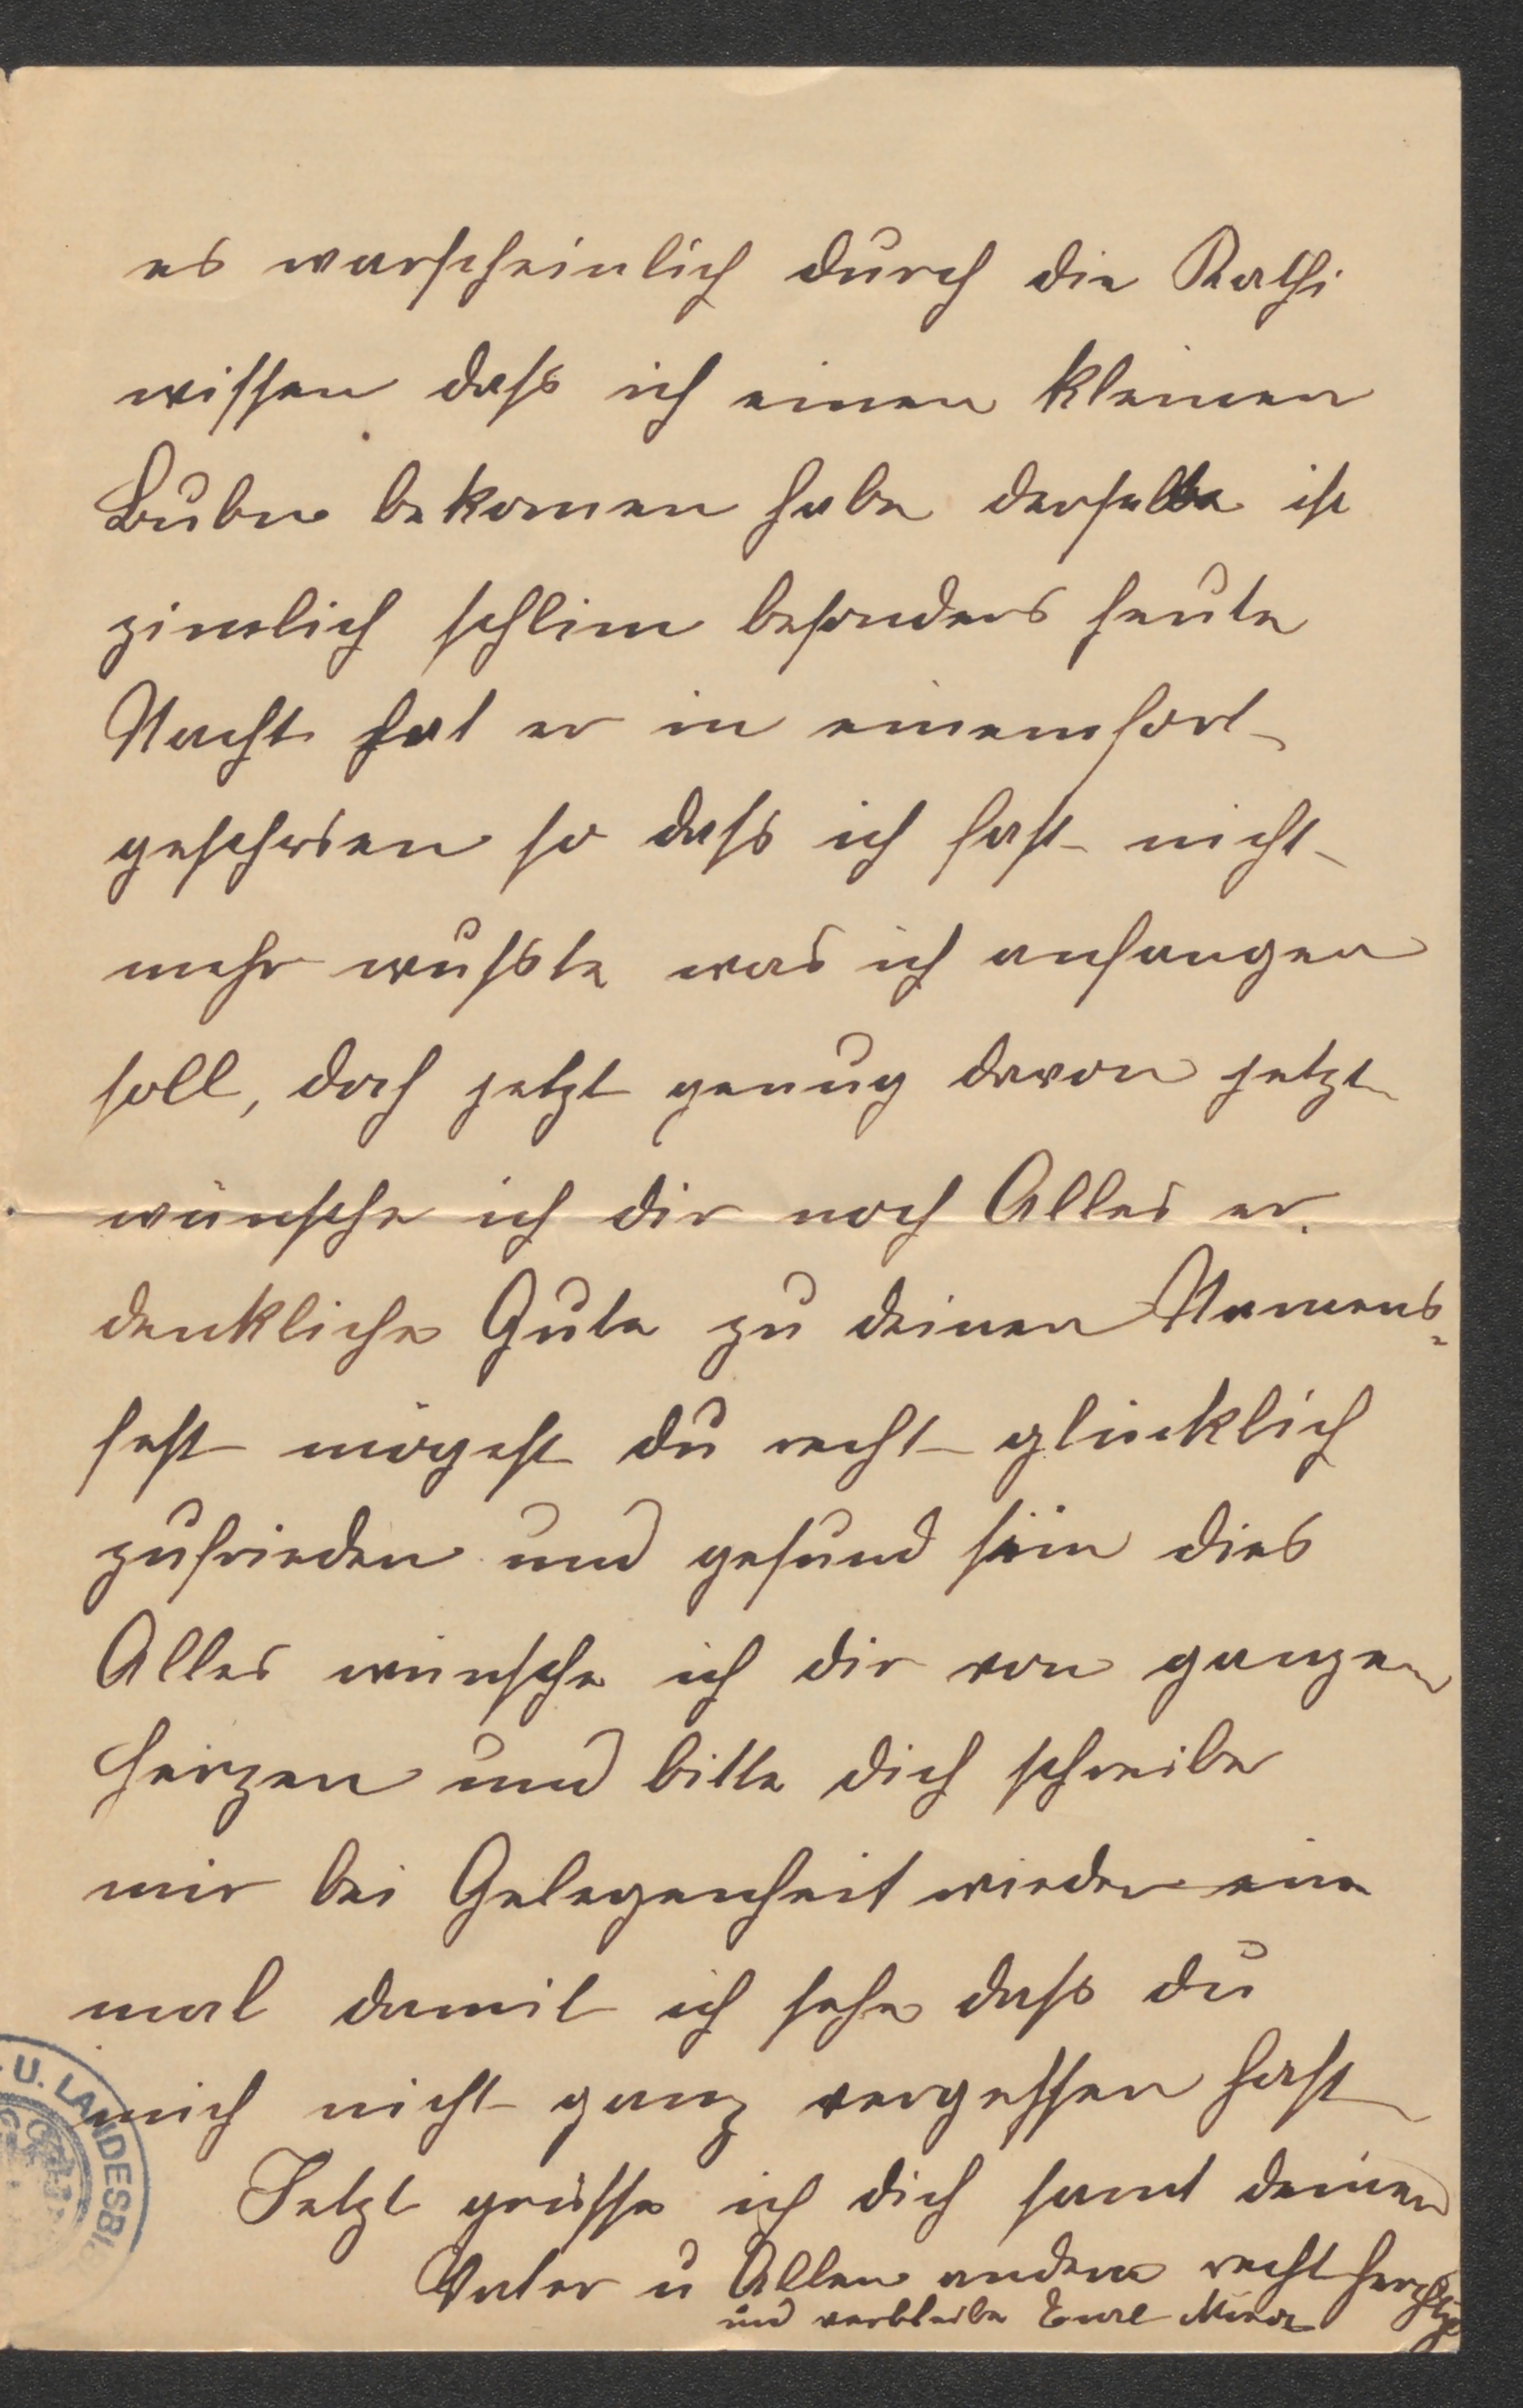 es warscheinlich durch die Kathi
wissen daß ich einen kleinen
Bubn bekomen habe derselbe ist
zimlich schlim besonders heute
Nacht hat er in einemfort
geschrien so daß ich fast nicht
mehr wußte was ich anfangen
soll, doch jetzt genug davon jetzt
wünsche ich dir noch Alles er
denkliche Gute zu deinen Namens-
fest mögest du recht glücklich
zufrieden und gesund sein dies
Alles wünsche ich dir von ganzen
Herzen und bitte dich schreibe
mir bei Gelegenheit wieder ein
mal damit ich sehe daß du
mich nicht ganz vergessen hast
Jetzt grüsse ich dich samt deinen
Vater u Allen andern recht herzlich
und verbleibe Eure
U. LANDESBI